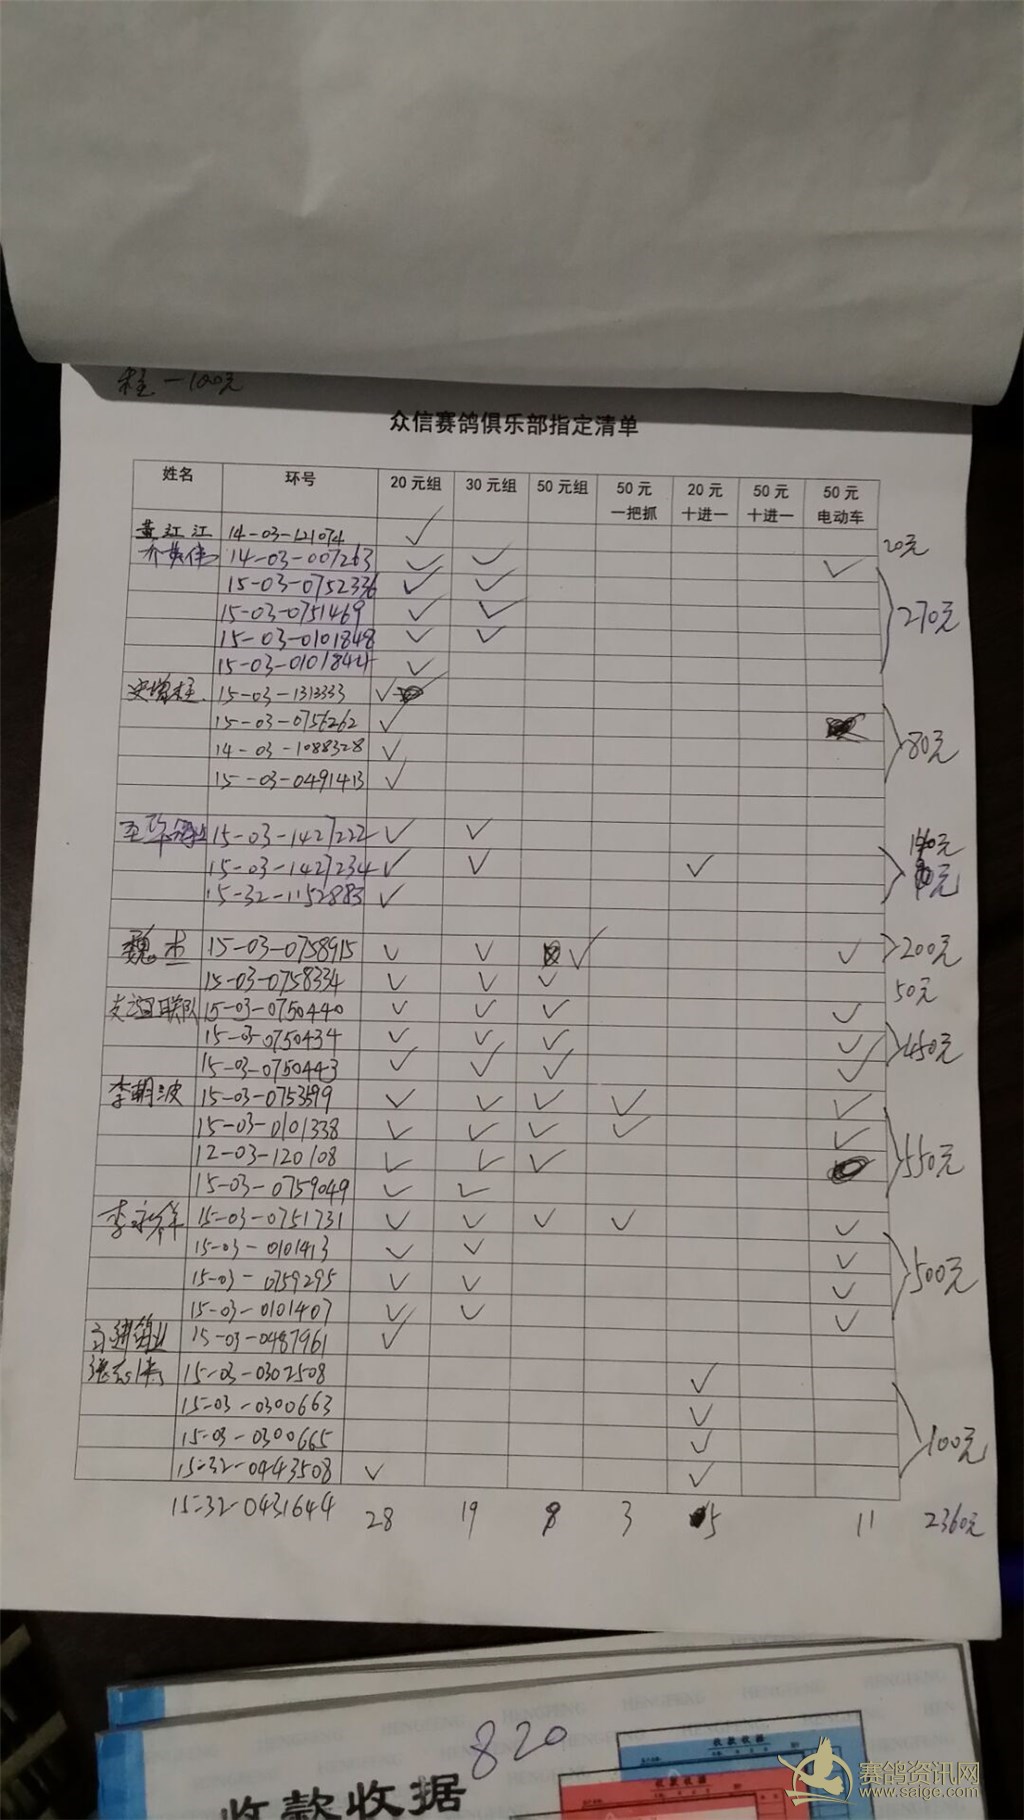 柱 一100元
众信赛鸽俱乐部指定清单
姓名 环号 20元组 30元组 50元组 50元一把抓 20元十进一 50元十进一 50元电动车
黄江江 14-03-121074 ✓ 20元
14-03-007263 ✓ ✓ ✓
15-03-0752336 ✓ ✓
15-03-0751469 ✓ ✓ 270元
15-03-0101848 ✓ ✓
15-03-0101844 ✓
15-03-1313333 ✓
15-03-0756262 ✓
14-03-1088328 ✓ 80元
15-03-0491413 ✓
15-03-1427222 ✓ ✓ 140元
15-03-1427234 ✓ ✓ ✓
15-32-1152883 ✓
魏杰 15-03-0758915 ✓ ✓ ✓ ✓ 200元
15-03-0758334 ✓ ✓ ✓ 50元
联队 15-03-0750440 ✓ ✓ ✓ ✓
15-03-0750434 ✓ ✓ ✓ ✓ 450元
15-03-0750443 ✓ ✓ ✓ ✓
李朝波 15-03-0753599 ✓ ✓ ✓ ✓ ✓
15-03-0101338 ✓ ✓ ✓ ✓ ✓
12-03-120108 ✓ ✓ ✓ 550元
15-03-0759049 ✓ ✓
李永祥 15-03-0751731 ✓ ✓ ✓ ✓ ✓
15-03-0101413 ✓ ✓ ✓
15-03-0759295 ✓ ✓ ✓ 500元
15-03-0101407 ✓ ✓ ✓
15-03-0487961 ✓
15-03-0302508 ✓
15-03-0300663 ✓
15-03-0300665 ✓ 100元
15-32-0443508 ✓ ✓
15-32-0431644 28 19 8 3 5 11 2360元
820
收款收据
收款收据
收款收据
赛鸽资讯网
www.saige.com